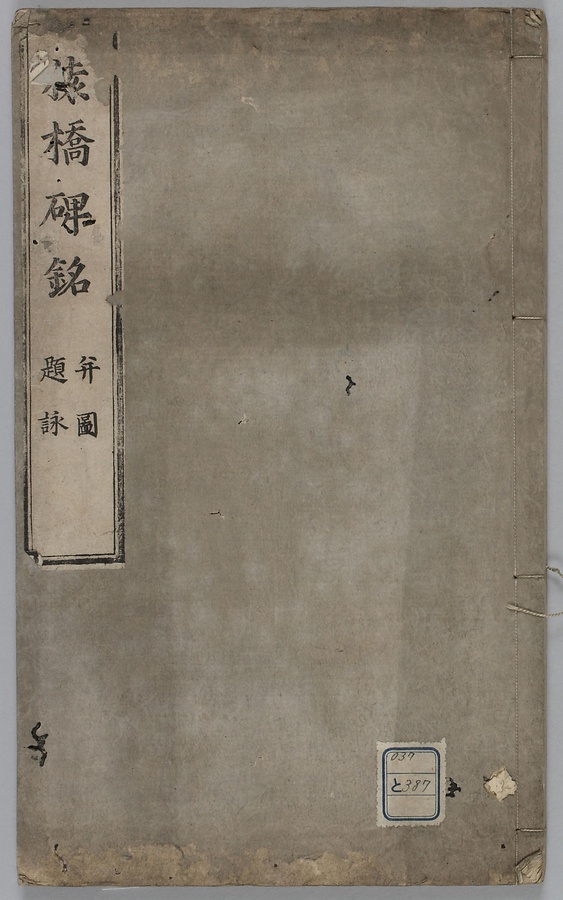 猿橋碑銘
弁圖
題詠
037
と387